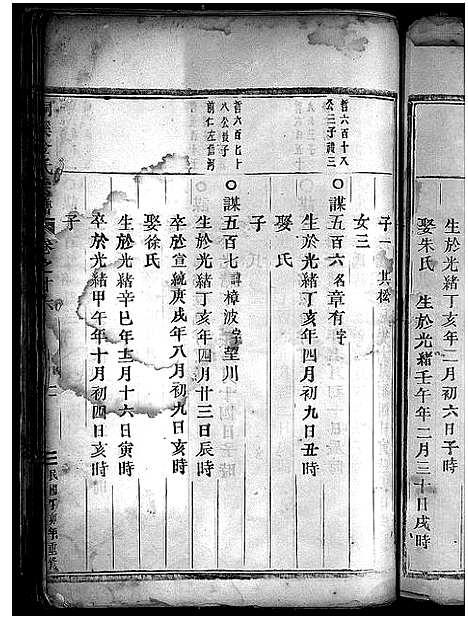 生於光緒丁亥年二月初六日子時
娶朱氏 生於光緒壬午年二月三十日戌時
子一 其松
女三
哲六百十八
公三子諱三
○謀五百六 名章有 字
生於光緒丁亥年四月初九日丑時
娶 氏
子
哲六百七十
八公長子
前仁左信河
○謀五百七 諱樟波 字望川
生於光緒丁亥年四月廿三日辰時
卒於宣統庚戌年八月初九日亥時
娶徐氏
生於光緒辛巳年十二月十六日寅時
卒於光緒甲午年十月初四日亥時
子